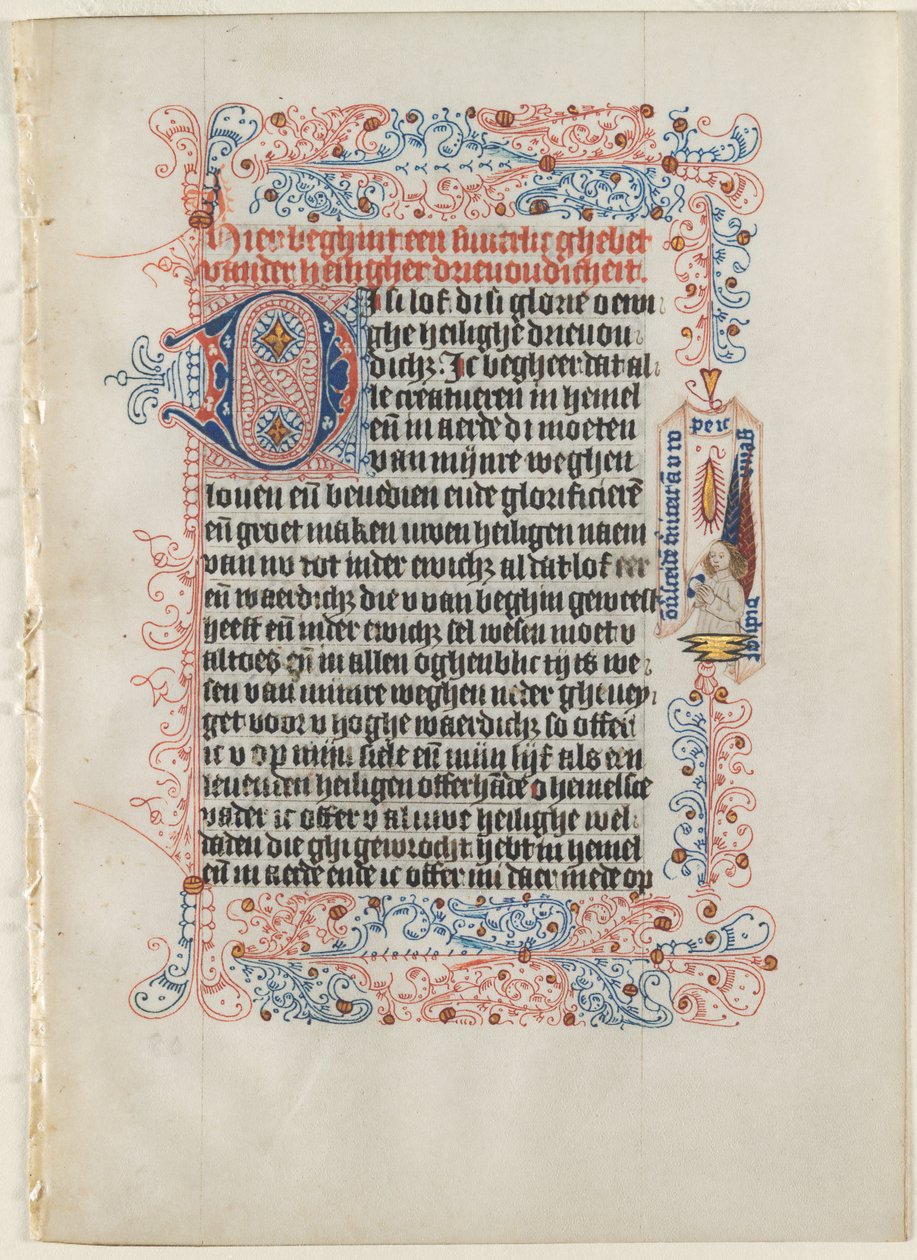 Hier beghint een suuerlic ghebet
van der heiligher drieuoudicheit.
Di si lof. di si glorie o ewi
ghe heilighe drieuou
dichz. Ic begheer dat al
le creatueren in hemel
en̄ in aerde di moeten
van mijnre weghen
louen en̄ benedien ende glorificierē
en̄ groet maken uwen heiligen naem
van nv tot inder ewichz al dat lof eer
en̄ waerdichz die v van beghin geweest
heeft en̄ inder ewichz sel wesen moet v
altoes en̄ in allen oghenblic tijts we
sen van mijnre weghen neder gheney
get voor v hoghe waerdichz so offer
ic v op mijn siele en̄ mijn lijf als een
leuenden heiligen offerhāde o hemelsce
vader ic offer v al uwe heilighe wel
daden die ghi gewrocht hebt in hemel
en̄ in aerde ende ic offer mi daer mede op